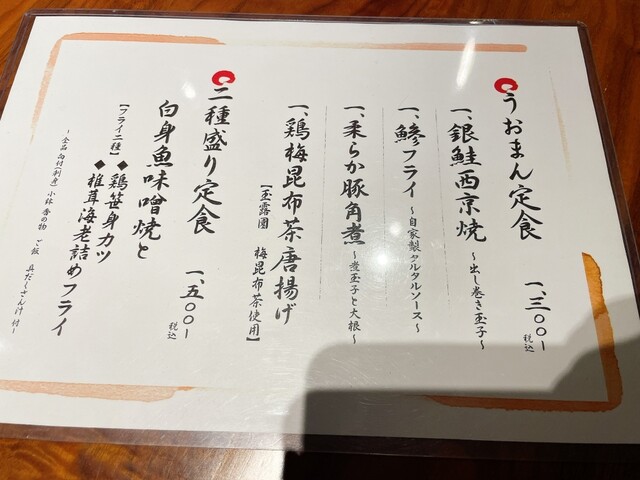 うおまん定食 一、三〇〇ー 税込
一、銀鮭西京焼 ~出し巻き玉子~
一、鯵フライ ~自家製タルタルソース~
一、柔らか豚角煮 ~煮玉子と大根~
一、鶏梅昆布茶唐揚げ
【玉露園 梅昆布茶使用】
二種盛り定食 一、五〇〇ー 税込
白身魚味噌焼と
【フライ二種】◆鶏笹身カツ
◆椎茸海老詰めフライ
~全品 向付(刺身) 小鉢 香の物 ご飯 具だくさん汁 付~